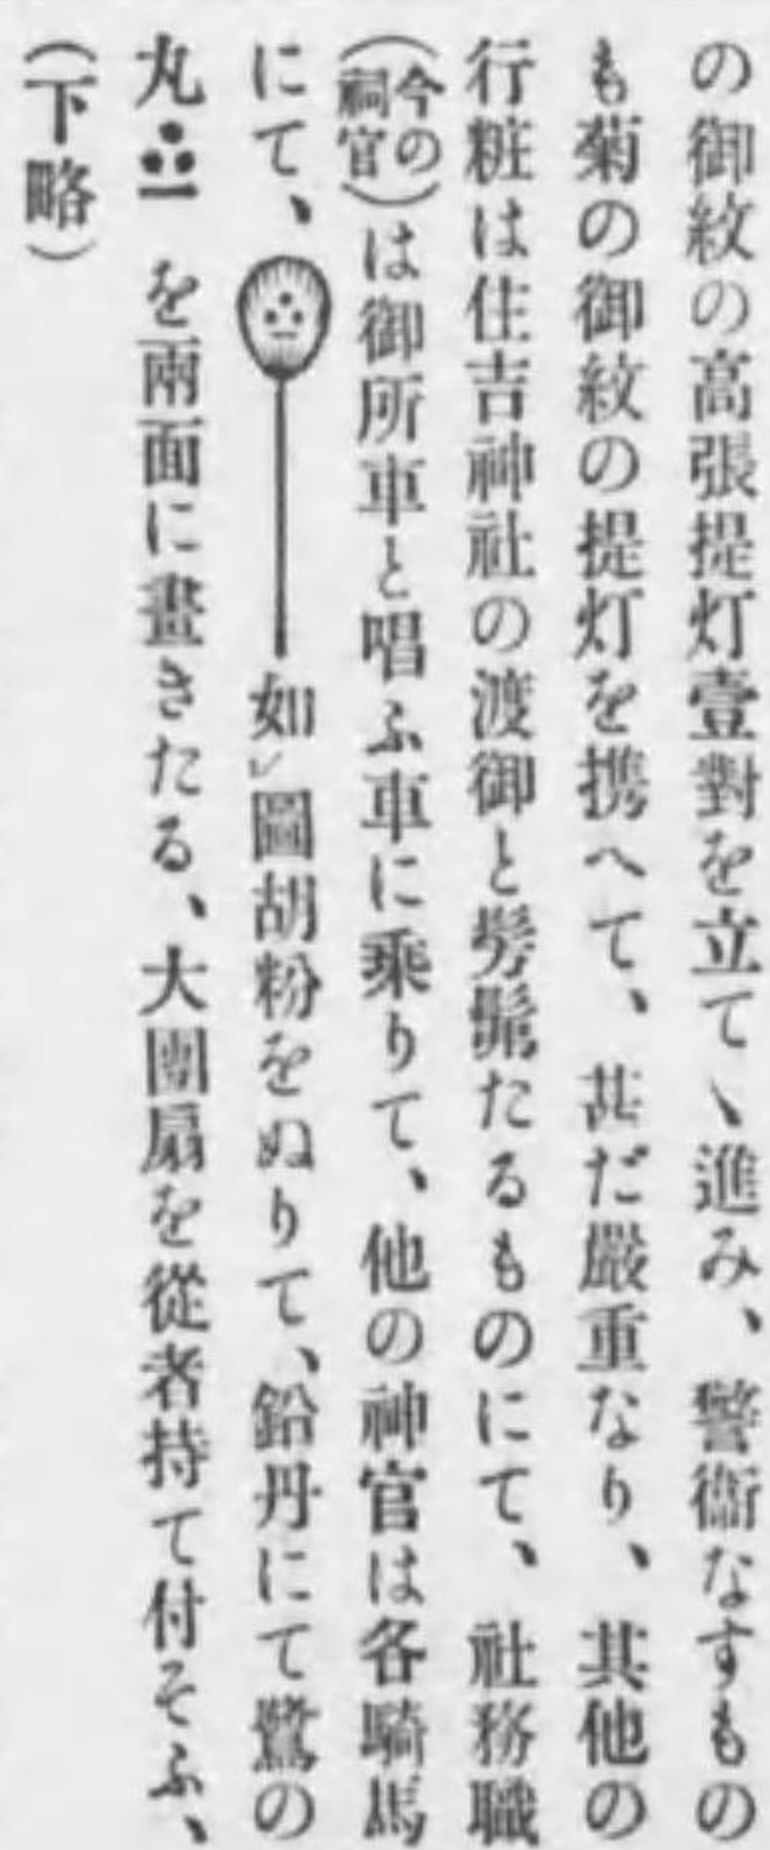 の御紋の高張提灯壹對を立てヽ進み、警衞なすもの
も菊の御紋の提灯を携へて、甚だ嚴重なり、其他の
行粧は住吉神社の渡御と髣髴たるものにて、社務職
(今の祠官)は御所車と唱ふ車に乘りて、他の神官は各騎馬
にて、如レ圖胡粉をぬりて、鉛丹にて鷺の
丸を兩面に畫きたる、大團扇を從者持て付そふ、
(下略)